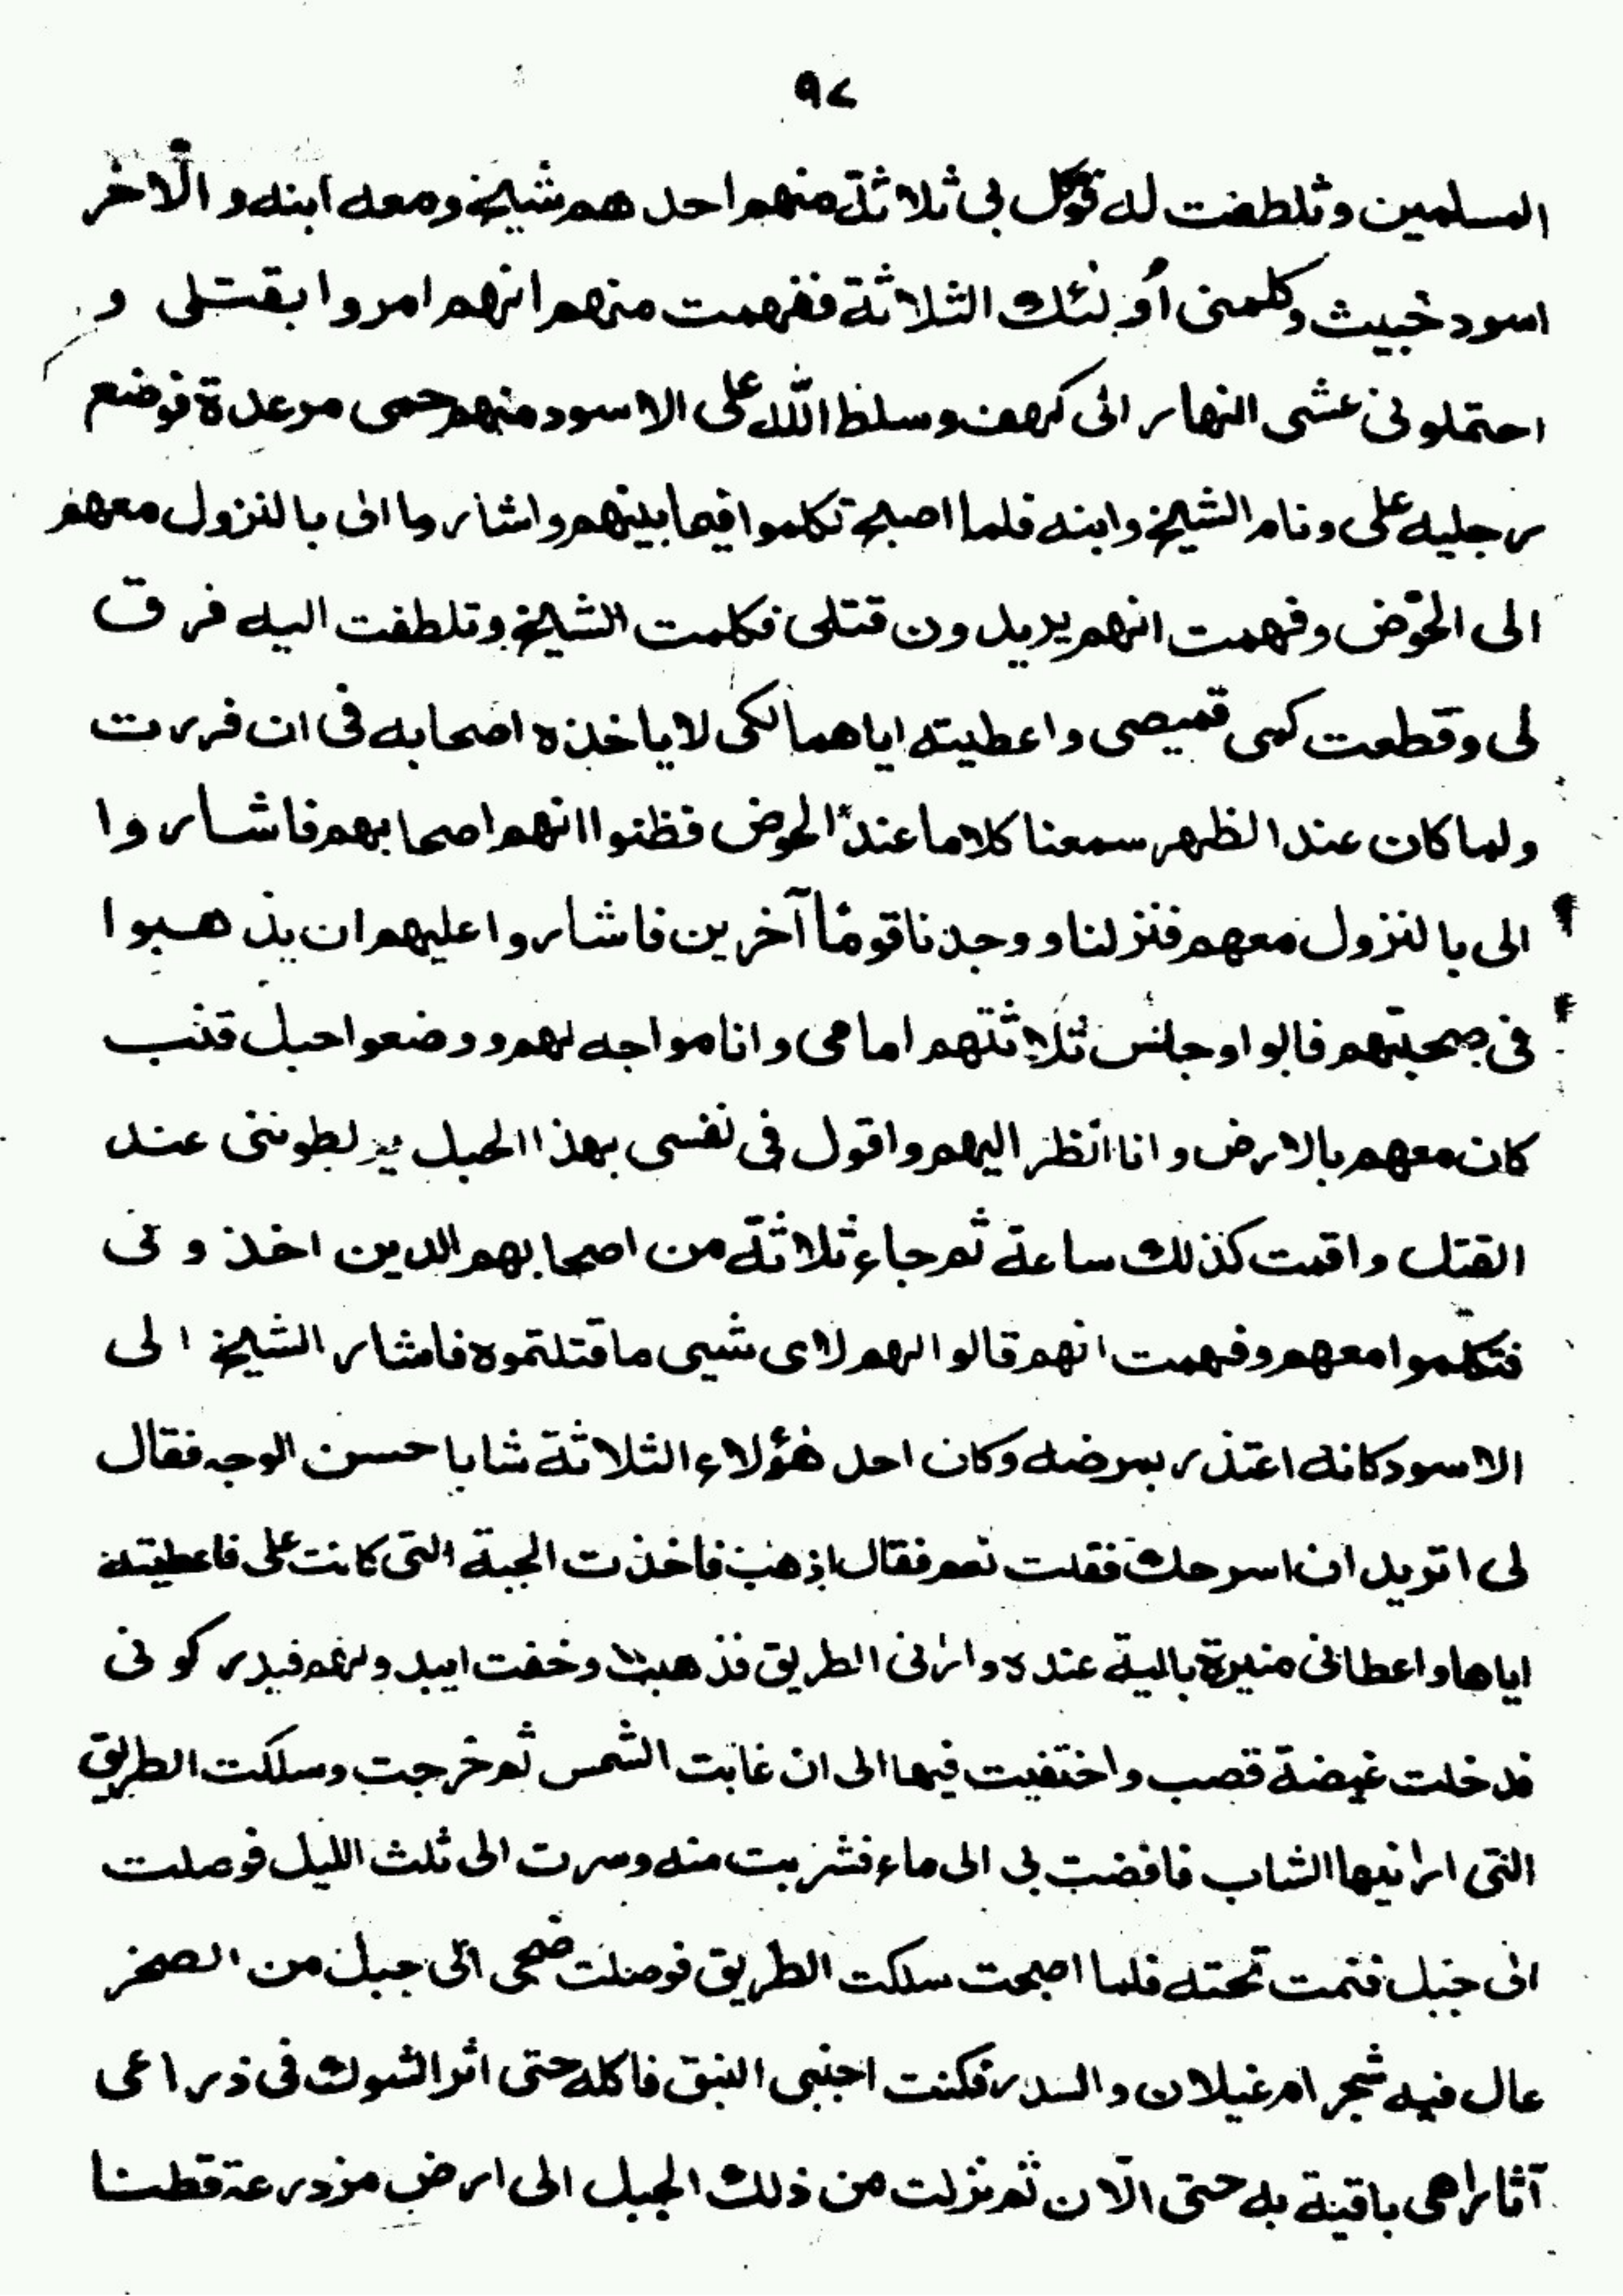 ٩٧
المسلمين وتلطفت له توكل بى ثلاثة منهم احدهم شيخ ومعه ابنه و الآخر
اسود خبيث وكلمنى أولئك الثلاثة ففهمت منهم انهم امروا بقتلى و
احتملونى عشى النهار الى كهف وسلط الله على الاسود منهم حمى مرعدة فوضع
رجليه على ونام الشيخ وابنه فلما اصبح تكلموا فيما بينهم واشاروا الى بالنزول معهم
الى الحوض وفهمت انهم يريدون قتلى فكلمت الشيخ وتلطفت اليه فرق
لى وقطعت كمى قميصى واعطيته اياهما لكى لا ياخذه اصحابه فى ان فررت
ولما كان عند الظهر سمعنا كلاما عند الحوض فظنوا انهم اصحابهم فاشاروا
الى بالنزول معهم فنزلنا ووجدنا قومًا آخرين فاشاروا عليهم ان يذهبوا
فى صحبتهم فابوا وجلس ثلاثتهم امامى وانا مواجه لهم ووضعوا حبل قنب
كان معهم بالارض وانا انظر اليهم واقول فى نفسى بهذا الحبل يربطوننى عند
القتل واقمت كذلك ساعة ثم جاء ثلاثة من اصحابهم الذين اخذونى
فتكلموا معهم وفهمت انهم قالوا لهم لاى شيى ما قتلتموه فاشار الشيخ الى
الاسود كانه اعتذر بمرضه وكان احد هؤلاء الثلاثة شابا حسن الوجه فقال
لى اتريد ان اسرحك فقلت نعم فقال اذهب فاخذت الجبة التى كانت على فاعطيته
اياها واعطانى منيرة بالية عنده وارانى الطريق فذهبت وخفت ان يبدو لهم فيدركونى
فدخلت غيضة قصب واختفيت فيها الى ان غابت الشمس ثم خرجت وسلكت الطريق
التى ارانيها الشاب فافضت بى الى ماء فشربت منه وسرت الى ثلث الليل فوصلت
الى جبل فنمت تحته فلما اصبحت سلكت الطريق فوصلت ضحى الى جبل من الصخر
عال فيه شجر ام غيلان والسدر فكنت اجنى النبق فاكله حتى اثر الشوك فى ذراعى
آثارا هى باقية به حتى الآن ثم نزلت من ذلك الجبل الى ارض مزدرعة قطنا